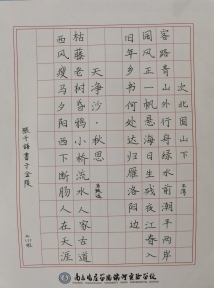 次北固山下
王湾
客路青山外行舟绿水前潮平两岸
阔风正一帆悬海日生残夜江春入
旧年乡书何处达归雁洛阳边
天净沙·秋思
马致远
枯藤老树昏鸦小桥流水人家古道
西风瘦马夕阳西下断肠人在天涯